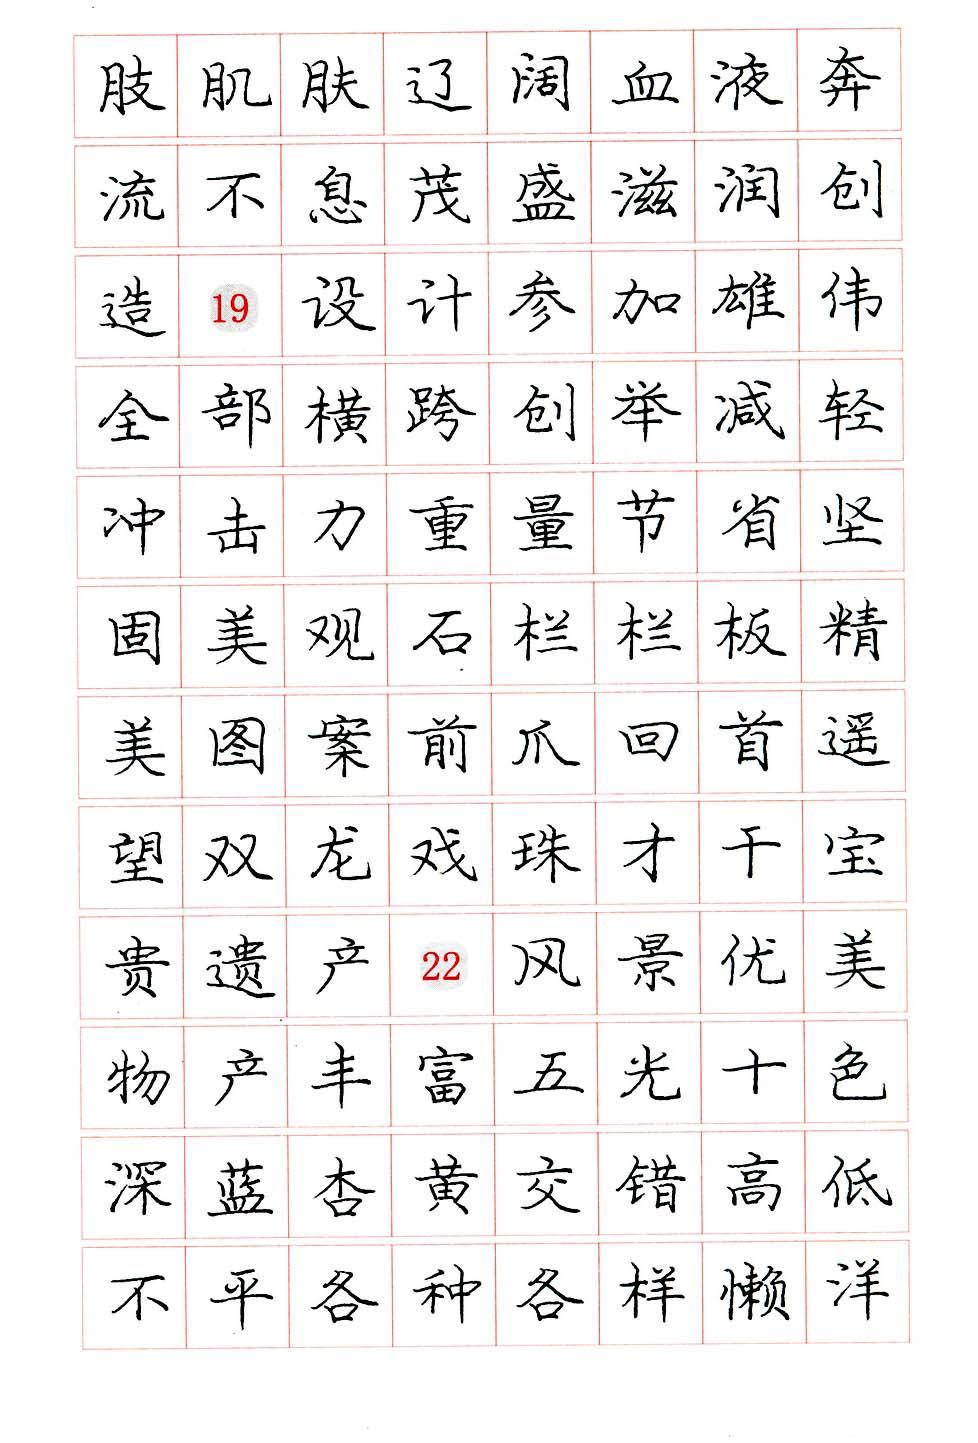 肢肌肤辽阔血液奔
流不息茂盛滋润创
造19设计参加雄伟
全部横跨创举减轻
冲击力重量节省坚
固美观石栏栏板精
美图案前爪回首遥
望双龙戏珠才干宝
贵遗产22风景优美
物产丰富五光十色
深蓝杏黄交错高低
不平各种各样懒洋